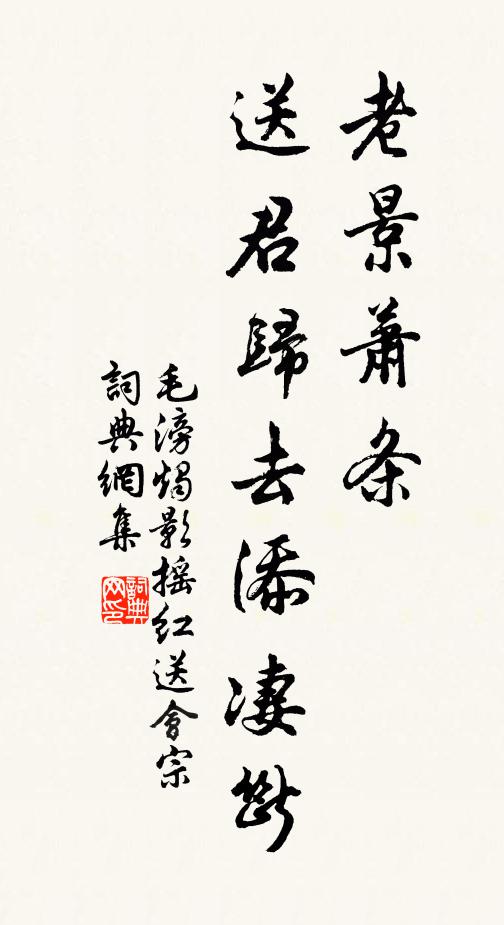 老景蕭条
送君歸去添凄断
毛滂燭影摇红送會宗
詞典網集
詞典
网印